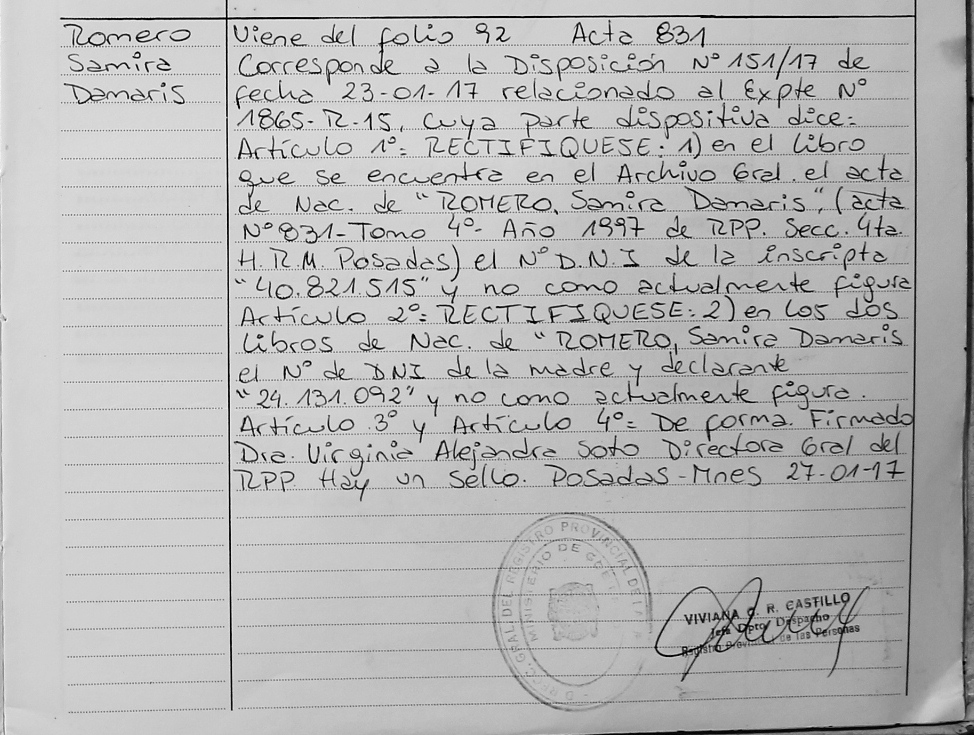 Romero
Samira
Damaris
Viene del folio 92 Acta 831
Corresponde a la Disposición Nº 151/17 de
fecha 23-01-17 relacionado al Expte Nº
1865-R-15, cuya parte dispositiva dice:
Artículo 1º: RECTIFIQUESE: 1) en el Libro
que se encuentra en el Archivo Gral. el acta
de Nac. de "ROMERO, Samira Damaris", (acta
Nº 831-Tomo 4º- Año 1997 de RPP. Secc. 4ta.
H.R.M. Posadas) el Nº D.N.I de la inscripta
"40.821.515" y no como actualmente figura
Artículo 2º: RECTIFIQUESE: 2) en los dos
libros de Nac. de "ROMERO, Samira Damaris
el Nº de DNI de la madre y declarante
"24.131.092" y no como actualmente figura.
Artículo 3º y Artículo 4º: De forma. Firmado
Dra. Virginia Alejandra Soto Directora Gral del
RPP. Hay un sello. Posadas-Mnes 27-01-17
GRAL DEL REGISTRO PROVINCIAL DE
MINISTERIO DE
VIVIANA C. R. CASTILLO
Jefa Dpto. Despacho
Registro Provincial de las Personas